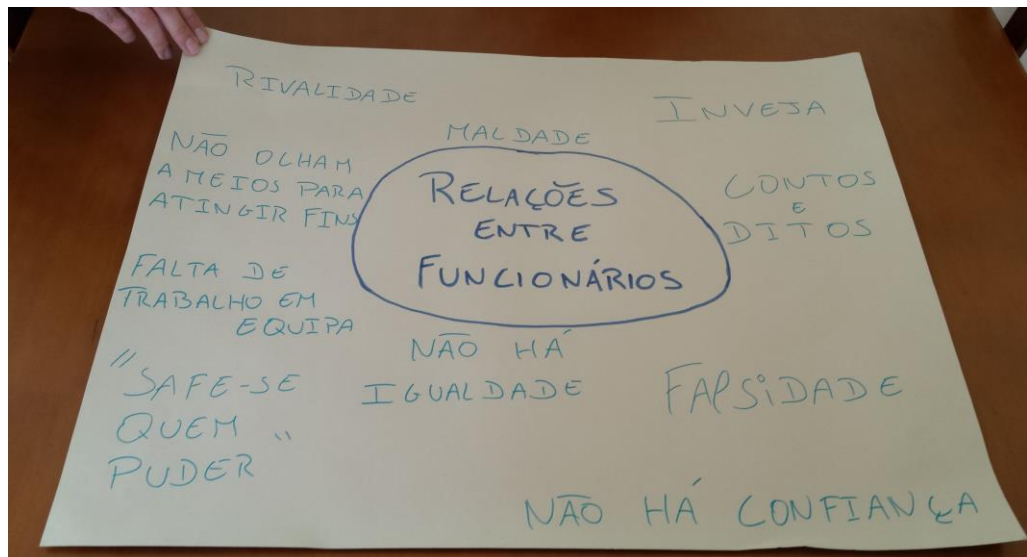 RIVALIDADE
INVEJA
MALDADE
NÃO OLHAM
A MEIOS PARA
ATINGIR FINS
RELAÇÕES
ENTRE
FUNCIONÁRIOS
CONTOS
E
DITOS
FALTA DE
TRABALHO EM
EQUIPA
NÃO HÁ
IGUALDADE
"SAFE-SE
QUEM "
PUDER
FALSiDADE
NÃO HÁ CONFIANÇA